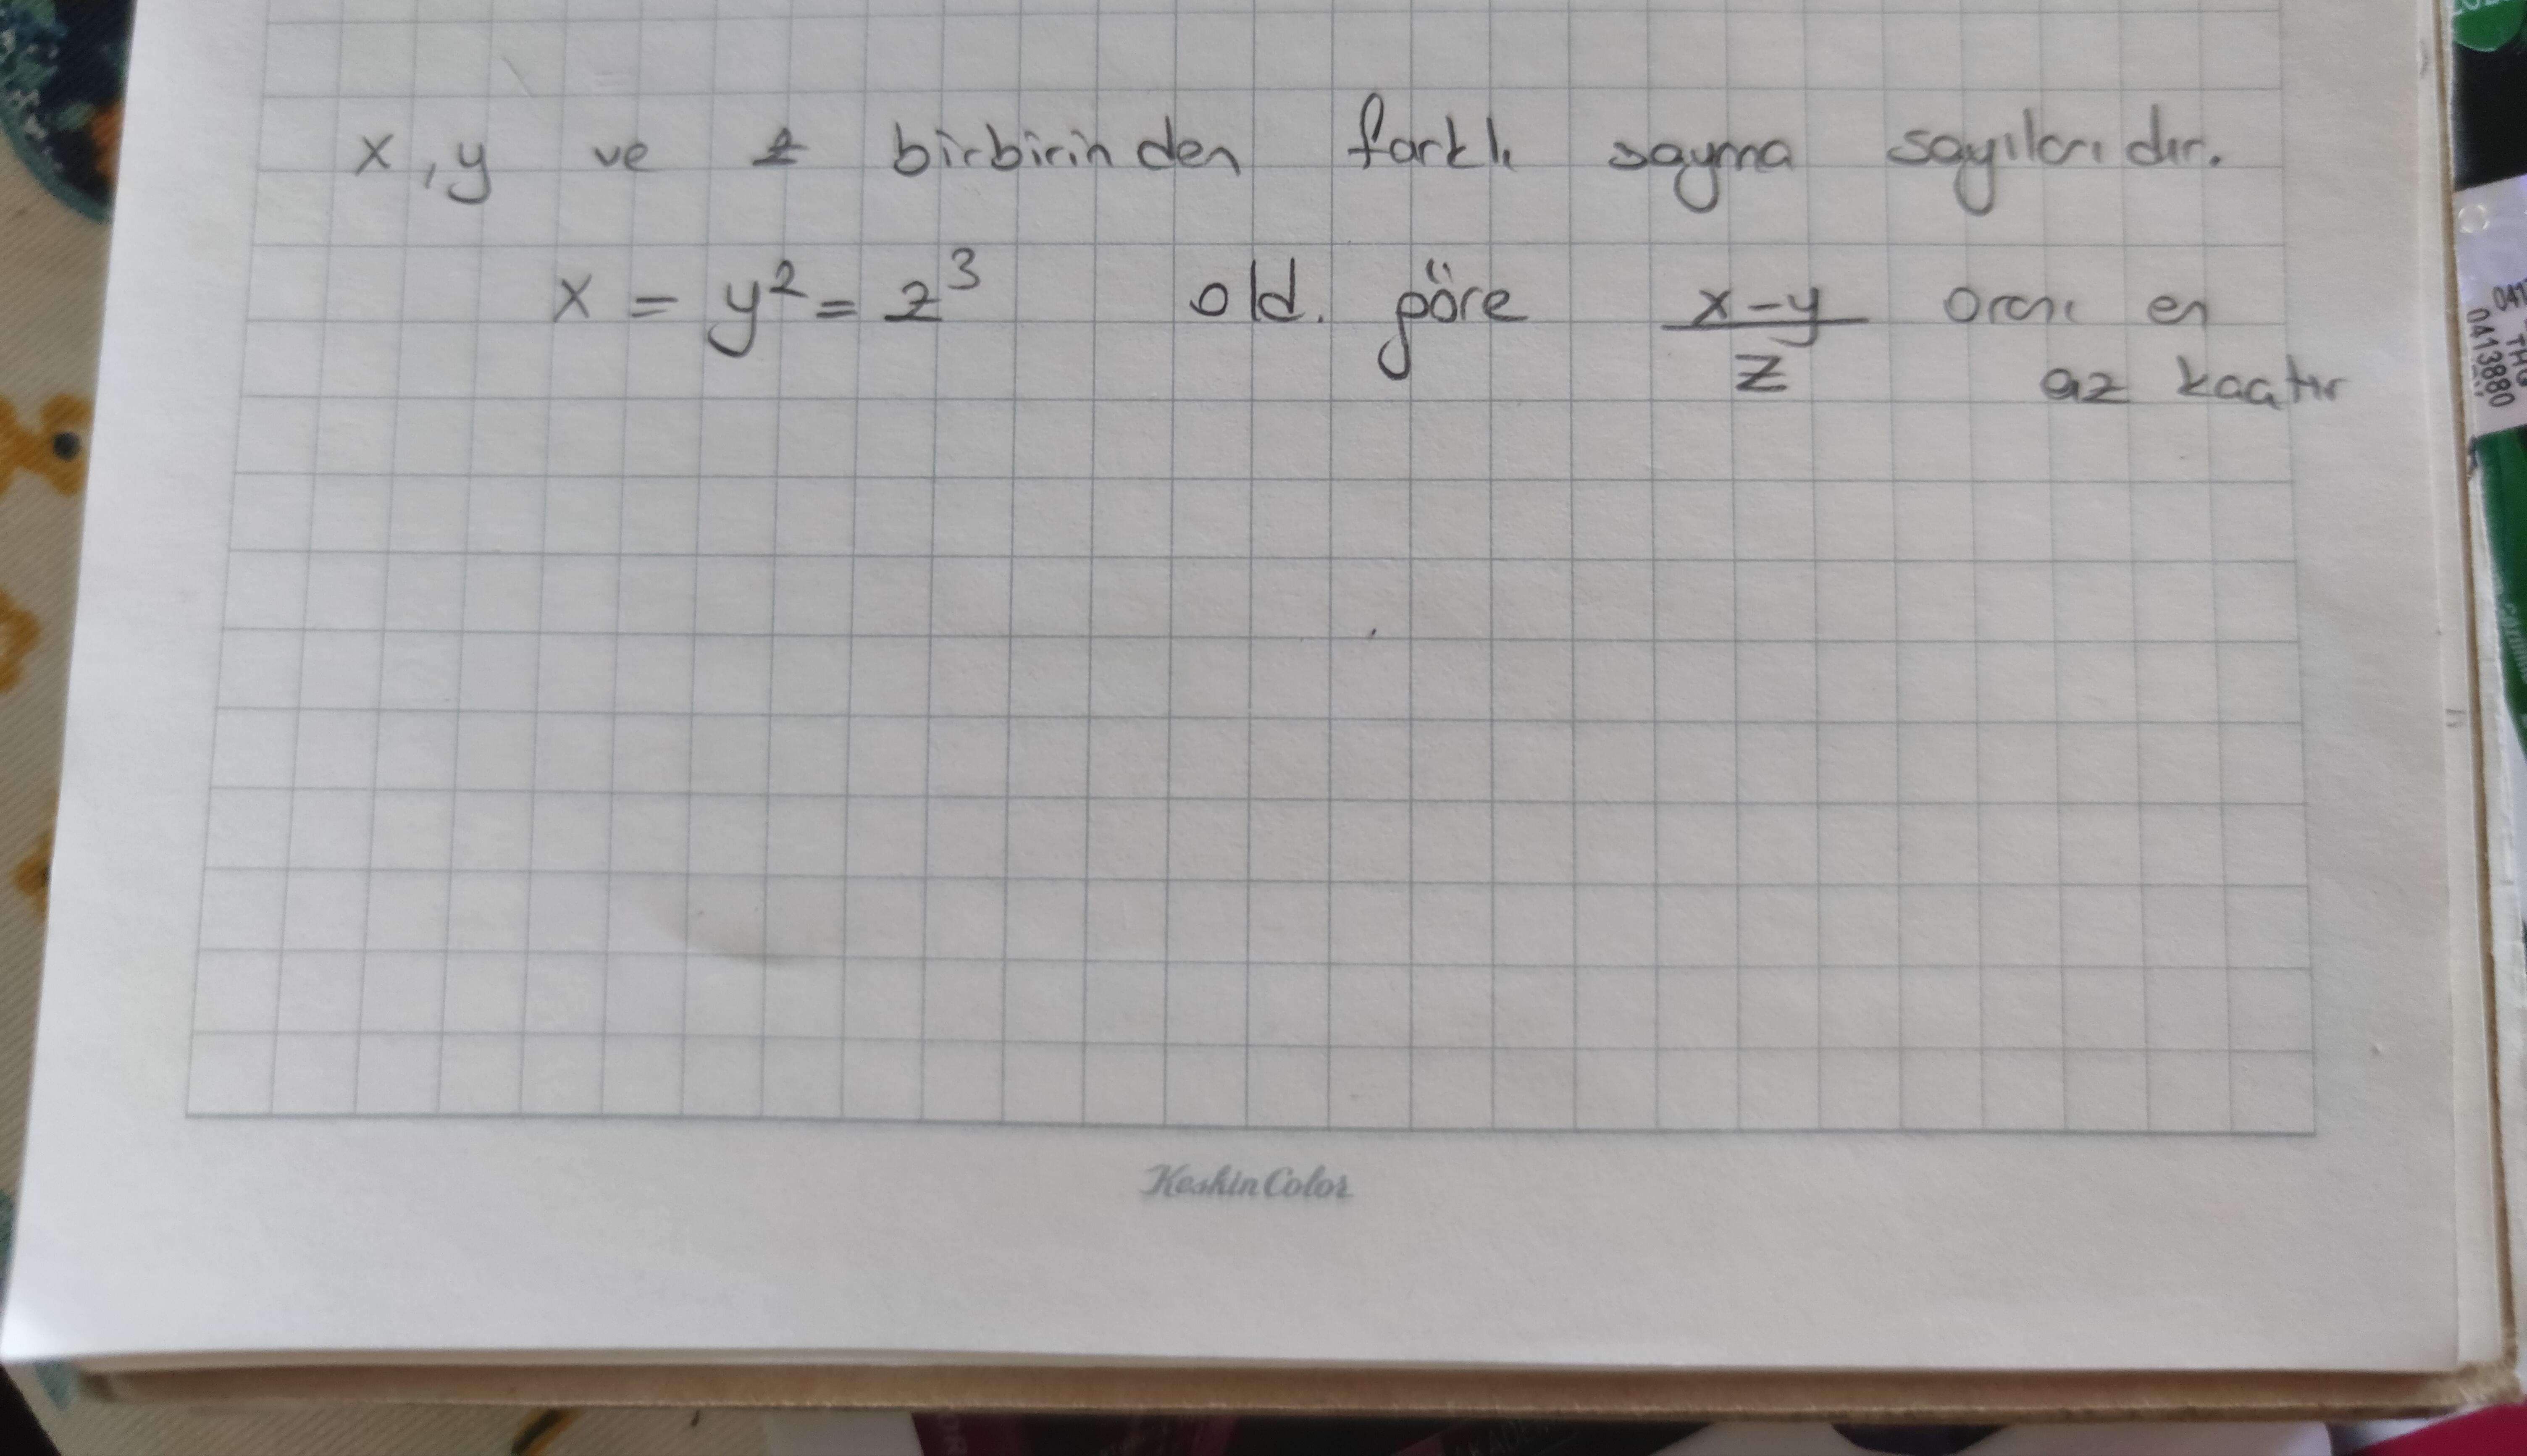 x, y ve z birbirinden farklı sayma sayılarıdır.
x = y² = z³ old. göre (x-y)/z oranı en
az kaçtır
KeskinColor
0413880